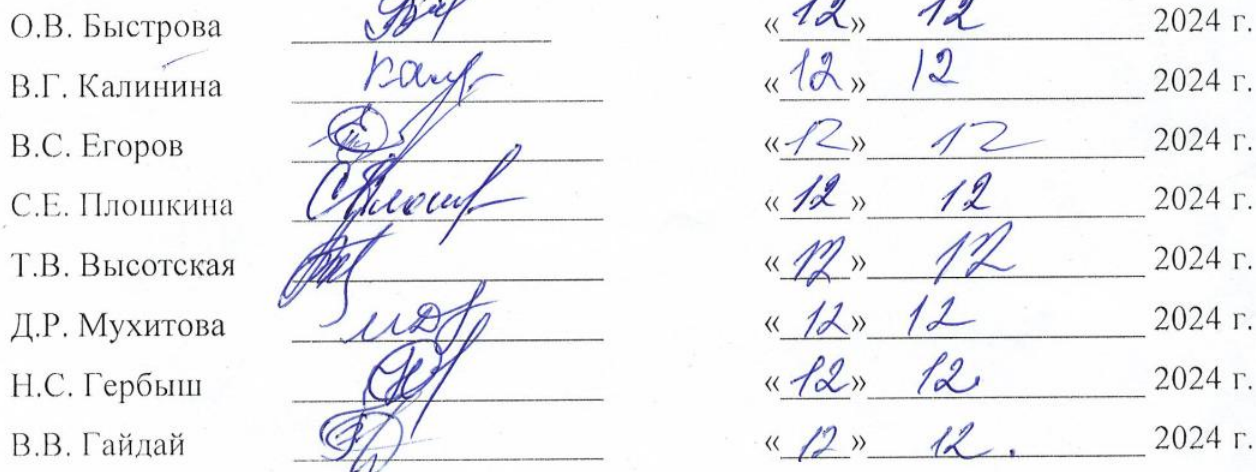 О.В. Быстрова «12» 12 2024 г.
В.Г. Калинина «12» 12 2024 г.
В.С. Егоров «12» 12 2024 г.
С.Е. Плошкина «12» 12 2024 г.
Т.В. Высотская «12» 12 2024 г.
Д.Р. Мухитова «12» 12 2024 г.
Н.С. Гербыш «12» 12. 2024 г.
В.В. Гайдай «12» 12. 2024 г.